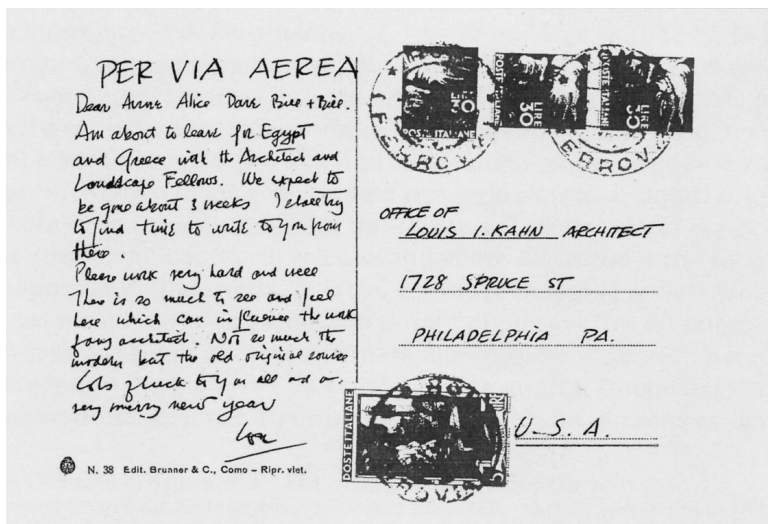 PER VIA AEREA
Dear Anne Alice Dave Bill + Bill.
Am about to leave for Egypt
and Greece with the Architect and
Landscape Fellows. We expect to
be gone about 3 weeks I shall try
to find time to write to you from
there.
Please work very hard and well
There is so much to see and feel
here which can influence the work
of any architect. Not so much the
modern but the old original source
Lots of luck to you all and a
very merry new year
Lou
N. 38 Edit. Brunner & C., Como – Ripr. viet.
POSTE ITALIANE
LIRE 30
POSTE ITALIANE
LIRE
POSTE ITALIANE
FERROVIA
ERROV
OFFICE OF
LOUIS I. KAHN ARCHITECT
1728 SPRUCE ST
PHILADELPHIA PA.
U.S.A.
POSTE ITALIANE
LIRE